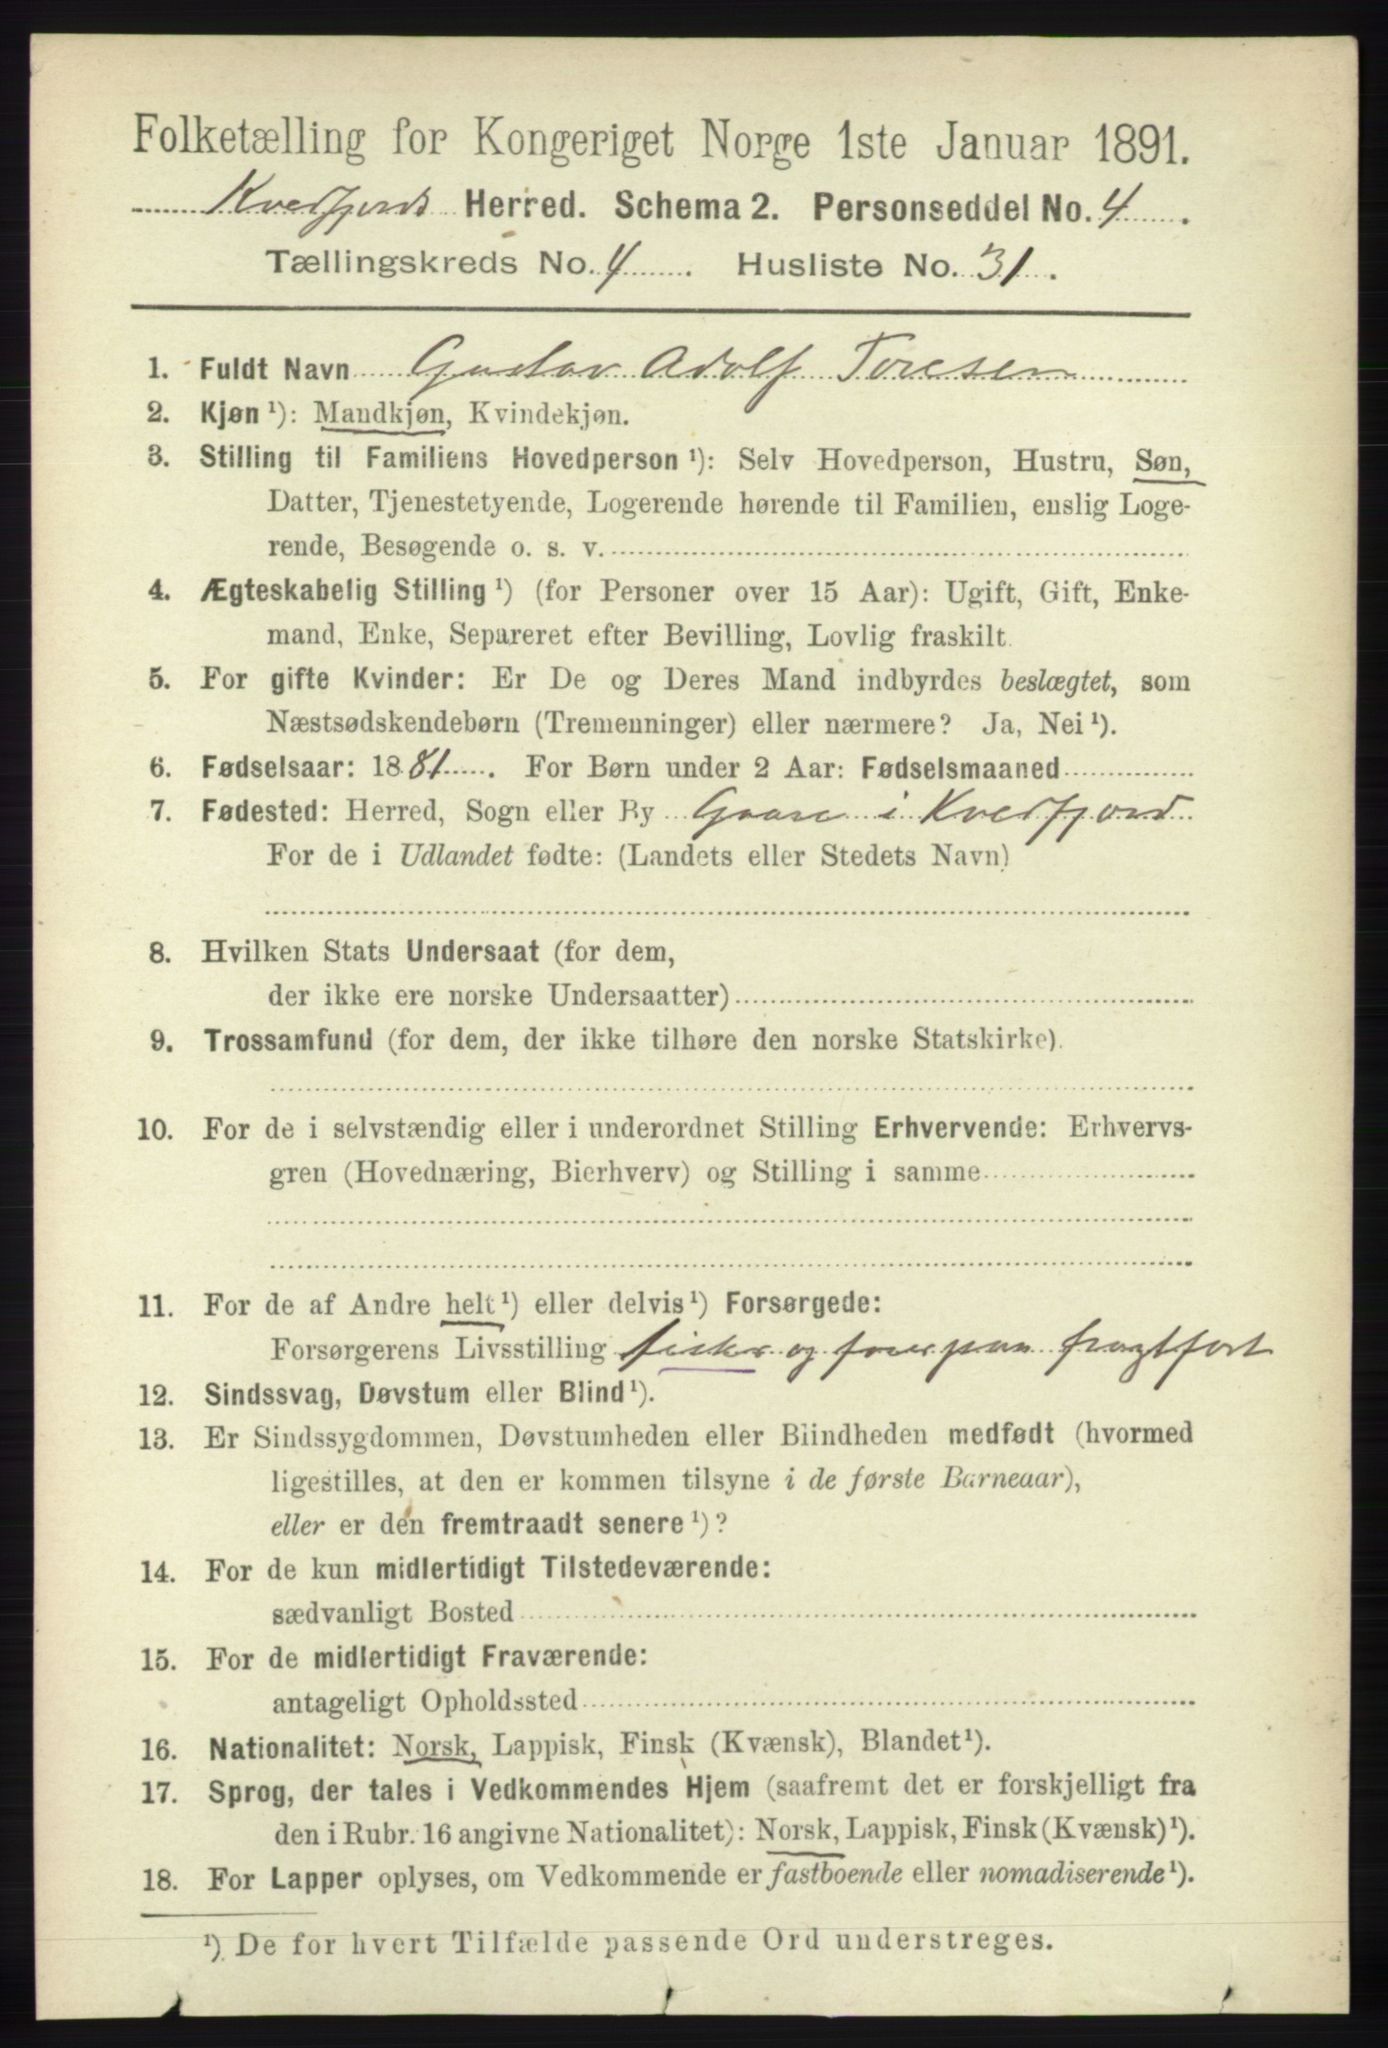 Folketælling for Kongeriget Norge 1ste Januar 1891.
Kvedfjords Herred. Schema 2. Personseddel No. 4.
Tællingskreds No. 4. Husliste No. 31.
1. Fuldt Navn Gustav Adolf Toresen
2. Kjøn ¹): Mandkjøn, Kvindekjøn.
3. Stilling til Familiens Hovedperson ¹): Selv Hovedperson, Hustru, Søn,
Datter, Tjenestetyende, Logerende hørende til Familien, enslig Loge-
rende, Besøgende o. s. v.
4. Ægteskabelig Stilling ¹) (for Personer over 15 Aar): Ugift, Gift, Enke-
mand, Enke, Separeret efter Bevilling, Lovlig fraskilt.
5. For gifte Kvinder: Er De og Deres Mand indbyrdes beslægtet, som
Næstsødskendebørn (Tremenninger) eller nærmere? Ja, Nei ¹).
6. Fødselsaar: 1881. For Børn under 2 Aar: Fødselsmaaned
7. Fødested: Herred, Sogn eller By i Kvedfjord
For de i Udlandet fødte: (Landets eller Stedets Navn)
8. Hvilken Stats Undersaat (for dem,
der ikke ere norske Undersaatter)
9. Trossamfund (for dem, der ikke tilhøre den norske Statskirke).
10. For de i selvstændig eller i underordnet Stilling Erhvervende: Erhvervs-
gren (Hovednæring, Bierhverv) og Stilling i samme
11. For de af Andre helt ¹) eller delvis ¹) Forsørgede:
Forsørgerens Livsstilling fisker og farer paa fragtfart
12. Sindssvag, Døvstum eller Blind ¹).
13. Er Sindssygdommen, Døvstumheden eller Blindheden medfødt (hvormed
ligestilles, at den er kommen tilsyne i de første Barneaar),
eller er den fremtraadt senere ¹)?
14. For de kun midlertidigt Tilstedeværende:
sædvanligt Bosted
15. For de midlertidigt Fraværende:
antageligt Opholdssted
16. Nationalitet: Norsk, Lappisk, Finsk (Kvænsk), Blandet ¹).
17. Sprog, der tales i Vedkommendes Hjem (saafremt det er forskjelligt fra
den i Rubr. 16 angivne Nationalitet): Norsk, Lappisk, Finsk (Kvænsk) ¹).
18. For Lapper oplyses, om Vedkommende er fastboende eller nomadiserende ¹).
¹) De for hvert Tilfælde passende Ord understreges.